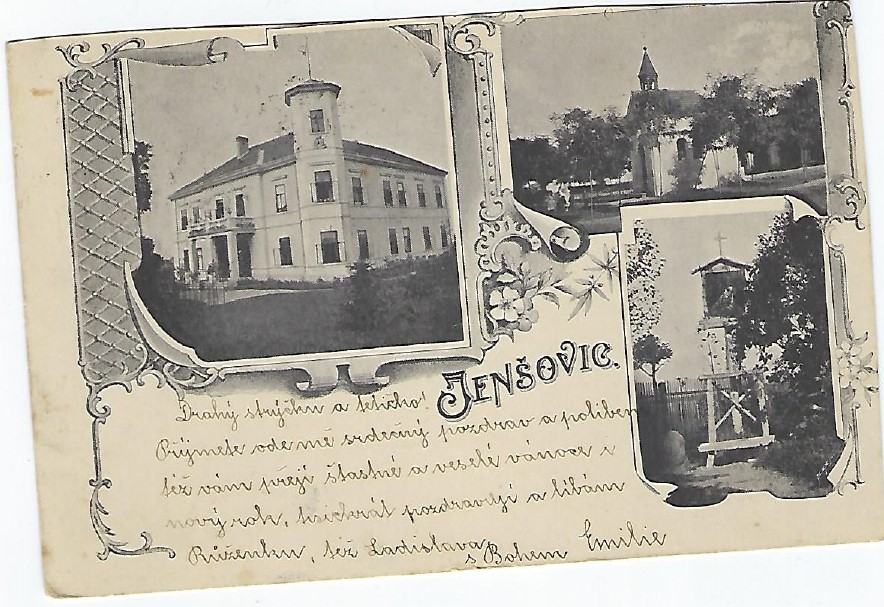 JENŠOVIC.
Drahý strýčku a teticho!
Přijmete ode mě srdečný pozdrav a políben
též vám přeji štastné a veselé vánoce i
nový rok, tisickrát pozdravuji a líbám
Růženku, též Ladislava
s Bohem Emilie